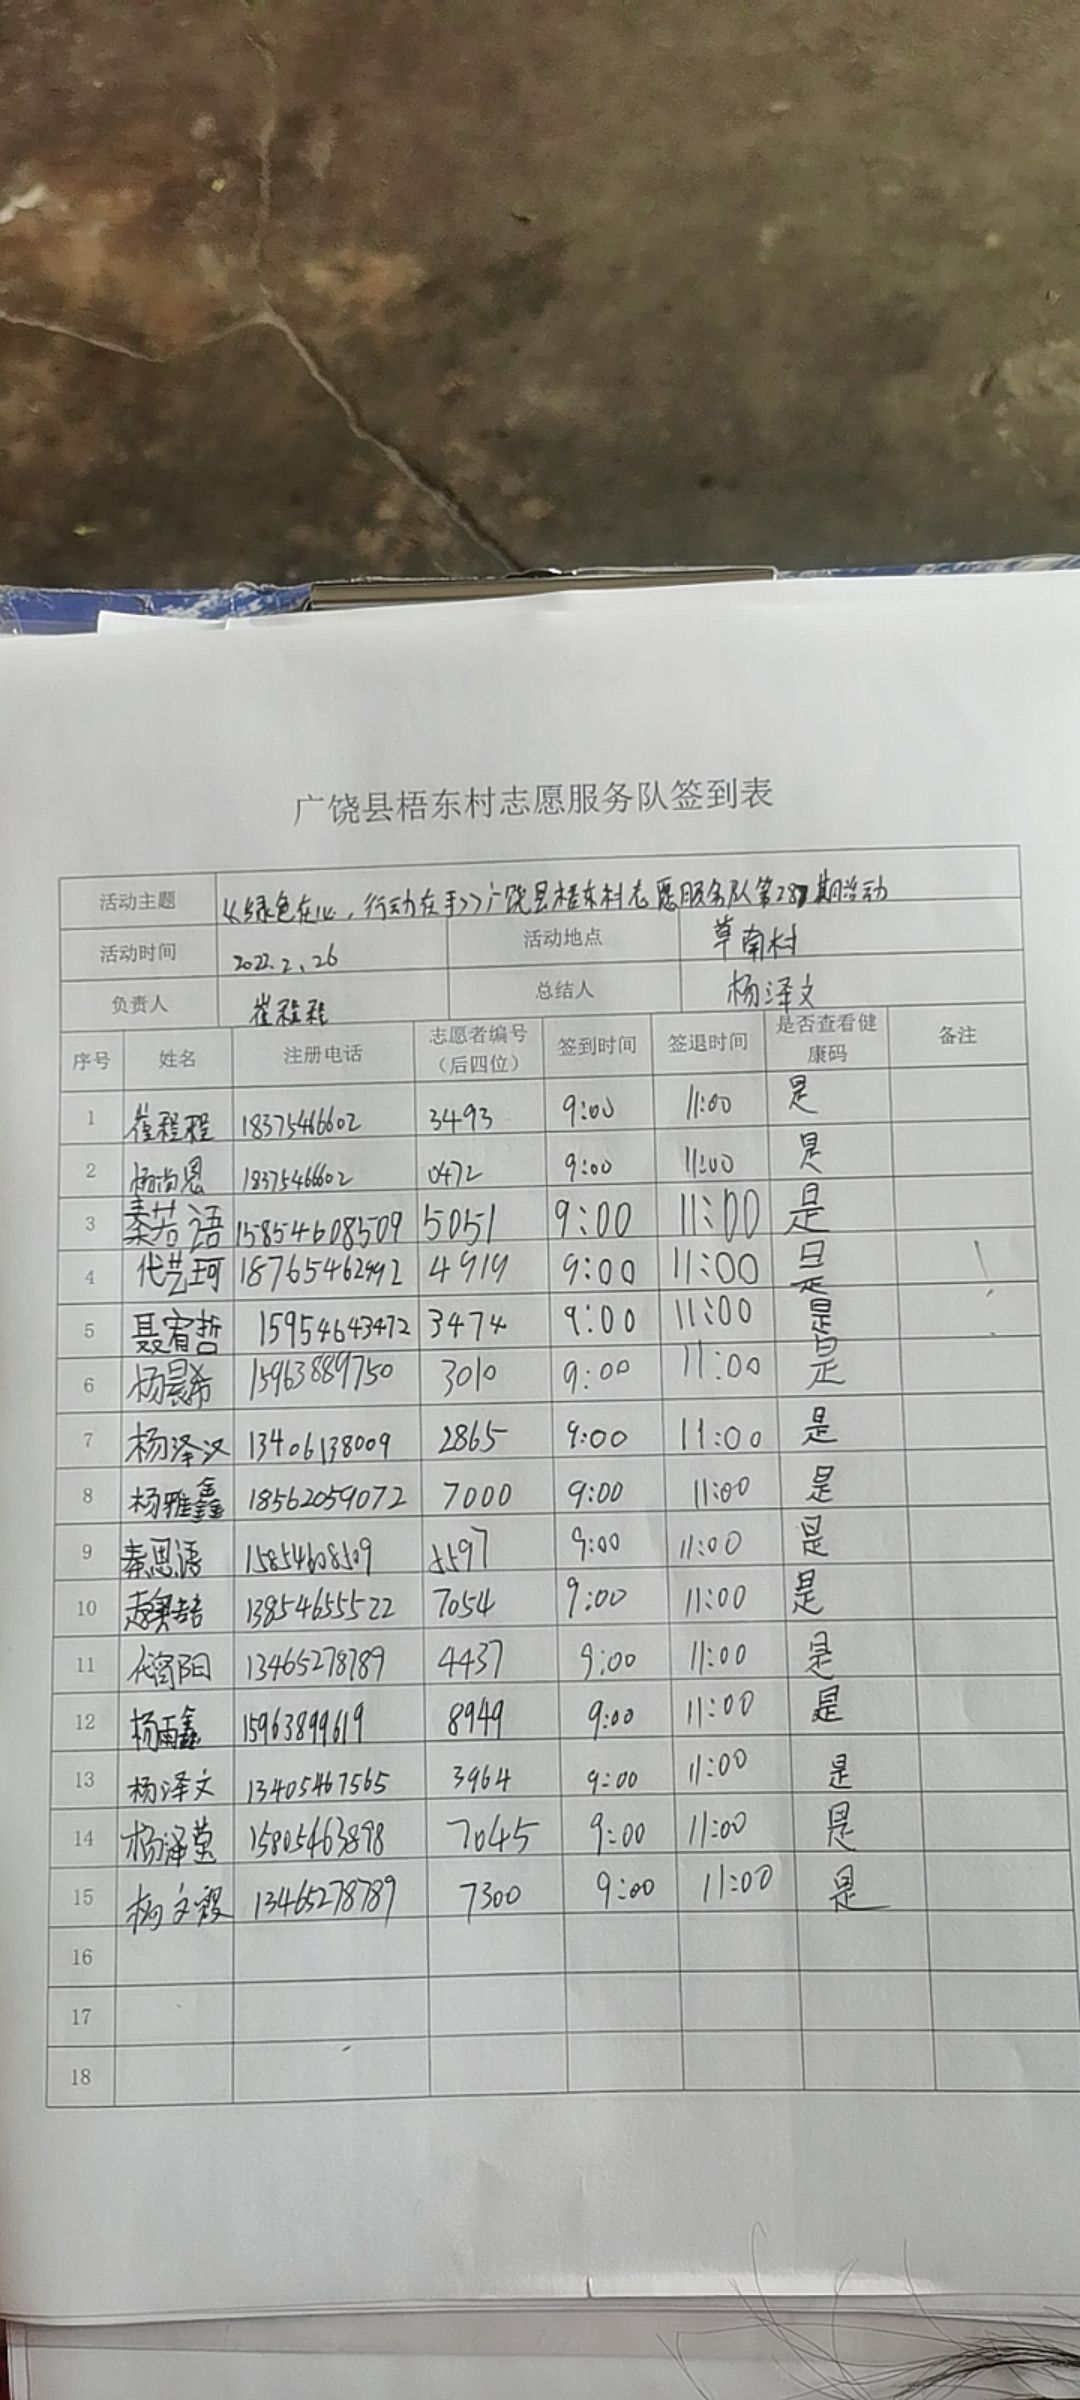 广饶县梧东村志愿服务队签到表
活动主题 《绿色在心,行动在手》广饶县梧东村志愿服务队第28期活动
活动时间 2022.2.26 活动地点 草南村
负责人 崔程程 总结人 杨泽文
序号 姓名 注册电话 志愿者编号（后四位） 签到时间 签退时间 是否查看健康码 备注
1 崔程程 18375466602 3493 9:00 11:00 是
2 杨尚恩 18375466602 0472 9:00 11:00 是
3 秦若语 15854608509 5051 9:00 11:00 是
4 代艺珂 18765462992 4919 9:00 11:00 是
5 聂宥哲 15954643472 3474 9:00 11:00 是
6 杨晨希 15963889750 3010 9:00 11:00 是
7 杨泽汉 13406138009 2865 9:00 11:00 是
8 杨雅鑫 18562059072 7000 9:00 11:00 是
9 秦思语 15854608509 5597 9:00 11:00 是
10 13854655522 7054 9:00 11:00 是
11 13465278789 4437 9:00 11:00 是
12 杨雨鑫 15963899619 8949 9:00 11:00 是
13 杨泽文 13405467565 3964 9:00 11:00 是
14 杨泽莹 15805463898 7045 9:00 11:00 是
15 13465278789 7300 9:00 11:00 是
16
17
18